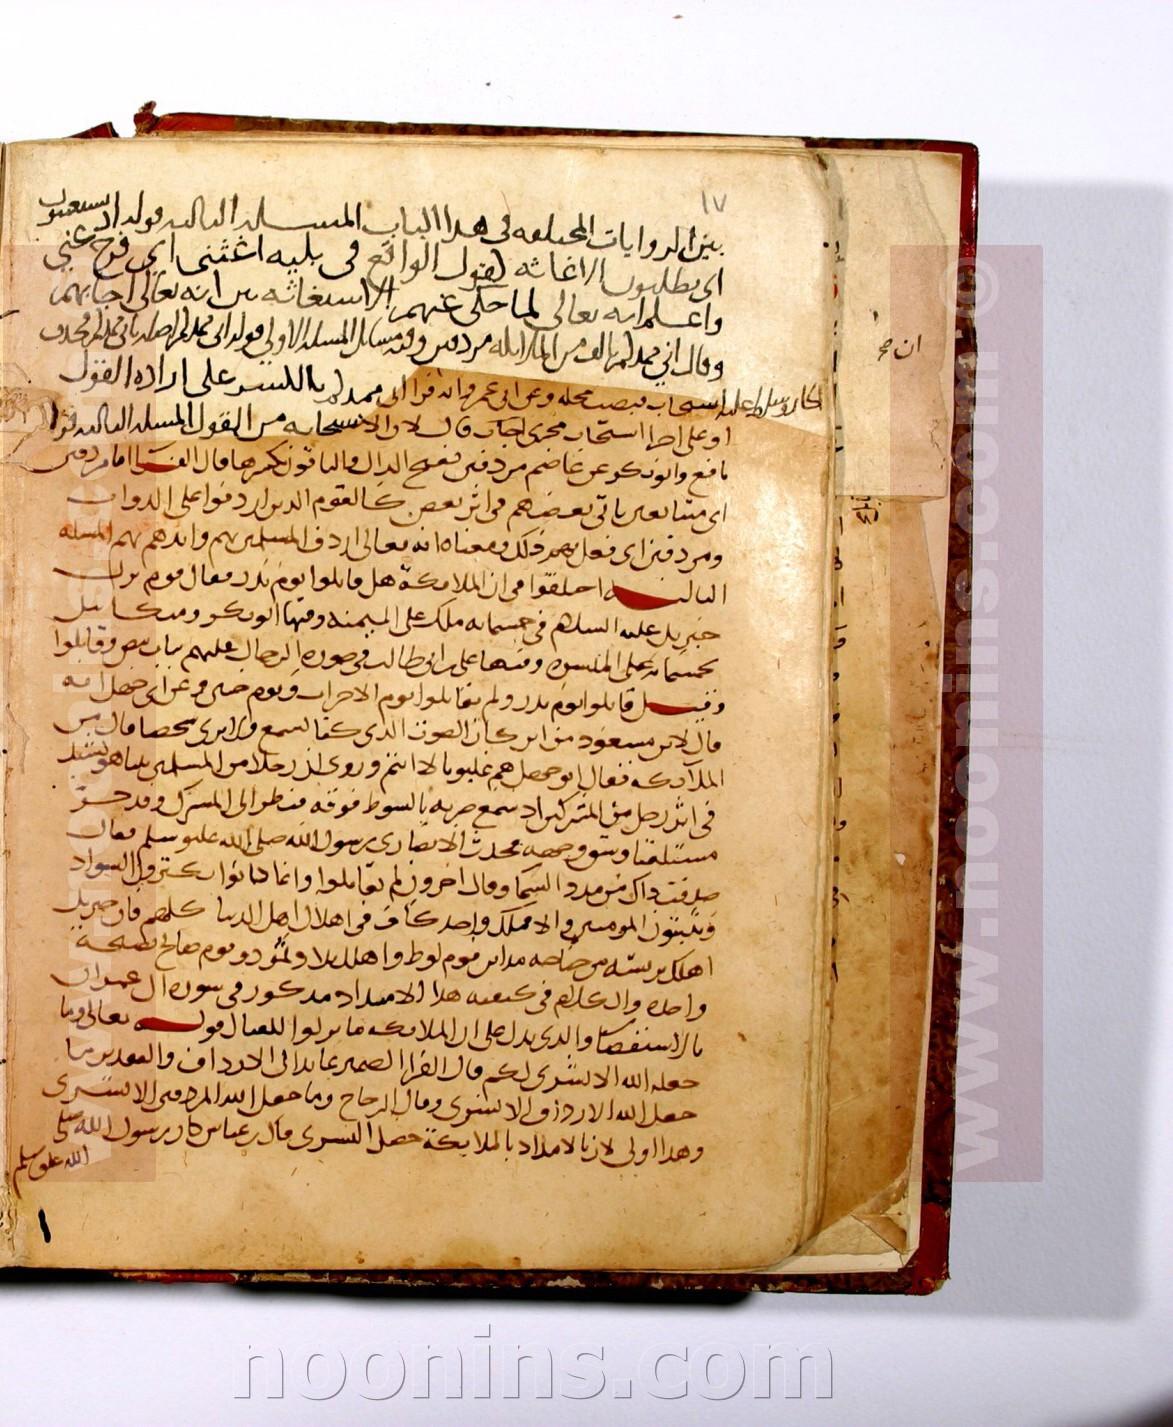 ١٧
بين الروايات المختلفة في هذا الباب المسئلة الثالثة قوله اذ تستغيثون
اي تطلبون الاغاثة يقول الواقع في بلية اغثني اي فرج عني
واعلم انه تعالى لما حكى عنهم الاستغاثة بين انه تعالى اجابهم
وقال اني ممدكم بالف من الملائكة مردفين وفيه مسائل المسئلة الاولى قوله اني ممدكم اصله باني ممدكم فحذف
الجار وسلط عليه استجاب فنصب محله وعن ابي عمرو انه قرا اني ممدكم بالكسر على ارادة القول
او على اجرا استجاب مجرى اجاب قال لان الاستجابة من القول المسئلة الثانية قرا
نافع وابو بكر عن عاصم مردفين بفتح الدال والباقون بكسرها قال الفرا مردفين
اي متتابعين ياتي بعضهم في اثر بعض كالقوم الذين اردفوا على الدواب
ومردفين اي فعل بهم ذلك ومعناه انه تعالى اردف المسلمين بهم وايدهم بهم المسئلة
الثالثة اختلفوا في ان الملائكة هل قاتلوا يوم بدر فقال قوم نزل
جبريل عليه السلام في خمسمائة ملك على الميمنة وفيها ابو بكر وميكائيل
بخمسمائة على الميسرة وفيها علي بن ابي طالب في صورة الرجال عليهم ثياب بيض وقاتلوا
وقيل قاتلوا يوم بدر ولم يقاتلوا يوم الاحزاب ويوم حنين وعن ابي جهل انه
قال لابن مسعود من اين كان الصوت الذي كنا نسمع ولا نرى شخصا قال من
الملائكة فقال ابو جهل هم غلبونا لا انتم وروى ان رجلا من المسلمين بينا هو يشتد
في اثر رجل من المشركين اذ سمع ضربة بالسوط فوقه فنظر الى المشرك وقد خر
مستلقيا وشق وجهه فحدث الانصاري رسول الله صلى الله عليه وسلم فقال
صدقت ذاك من مدد السما وقال اخرون لم يقاتلوا وانما كانوا يكثرون السواد
ويثبتون المومنين والا فملك واحد كاف في اهلاك اهل الدنيا كلهم فان جبريل
اهلك بريشة من جناحه مداين قوم لوط واهلك بلاد ثمود وقوم صالح بصيحة
واحدة والكلام في كيفية هذا الامداد مذكور في سورة ال عمران
بالاستقصا والذي يدل على ان الملائكة ما نزلوا للقتال قوله تعالى وما
جعله الله الا بشرى لكم قال الفرا الضمير عايد الى الارداف والتقدير ما
جعل الله الارداف الا بشرى وقال الزجاج وما جعل الله المردفين الا بشرى
وهذا اولى لان بالامداد بالملائكة حصل البشرى قال ابن عباس كان رسول الله صلى
الله عليه وسلم
www.noonins.com ©
noonins.com